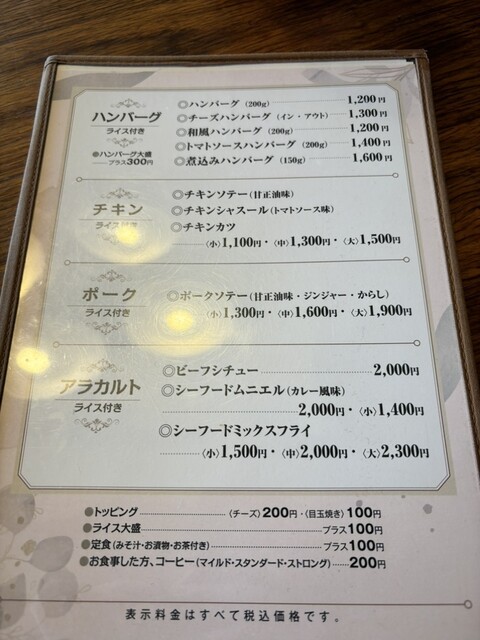 ハンバーグ
ライス付き
●ハンバーグ大盛
プラス300円
◎ハンバーグ (200g) 1,200円
◎チーズハンバーグ (イン・アウト) 1,300円
◎和風ハンバーグ (200g) 1,200円
◎トマトソースハンバーグ (200g) 1,400円
◎煮込みハンバーグ (150g) 1,600円
チキン
ライス付き
◎チキンソテー (甘正油味)
◎チキンシャスール (トマトソース味)
◎チキンカツ
〈小〉1,100円・〈中〉1,300円・〈大〉1,500円
ポーク
ライス付き
◎ポークソテー (甘正油味・ジンジャー・からし)
〈小〉1,300円・〈中〉1,600円・〈大〉1,900円
アラカルト
ライス付き
◎ビーフシチュー 2,000円
◎シーフードムニエル (カレー風味)
2,000円・〈小〉1,400円
◎シーフードミックスフライ
〈小〉1,500円・〈中〉2,000円・〈大〉2,300円
●トッピング 〈チーズ〉200円・〈目玉焼き〉100円
●ライス大盛 プラス100円
●定食 (みそ汁・お漬物・お茶付き) プラス100円
●お食事した方、コーヒー (マイルド・スタンダード・ストロング) 200円
表示料金はすべて税込価格です。